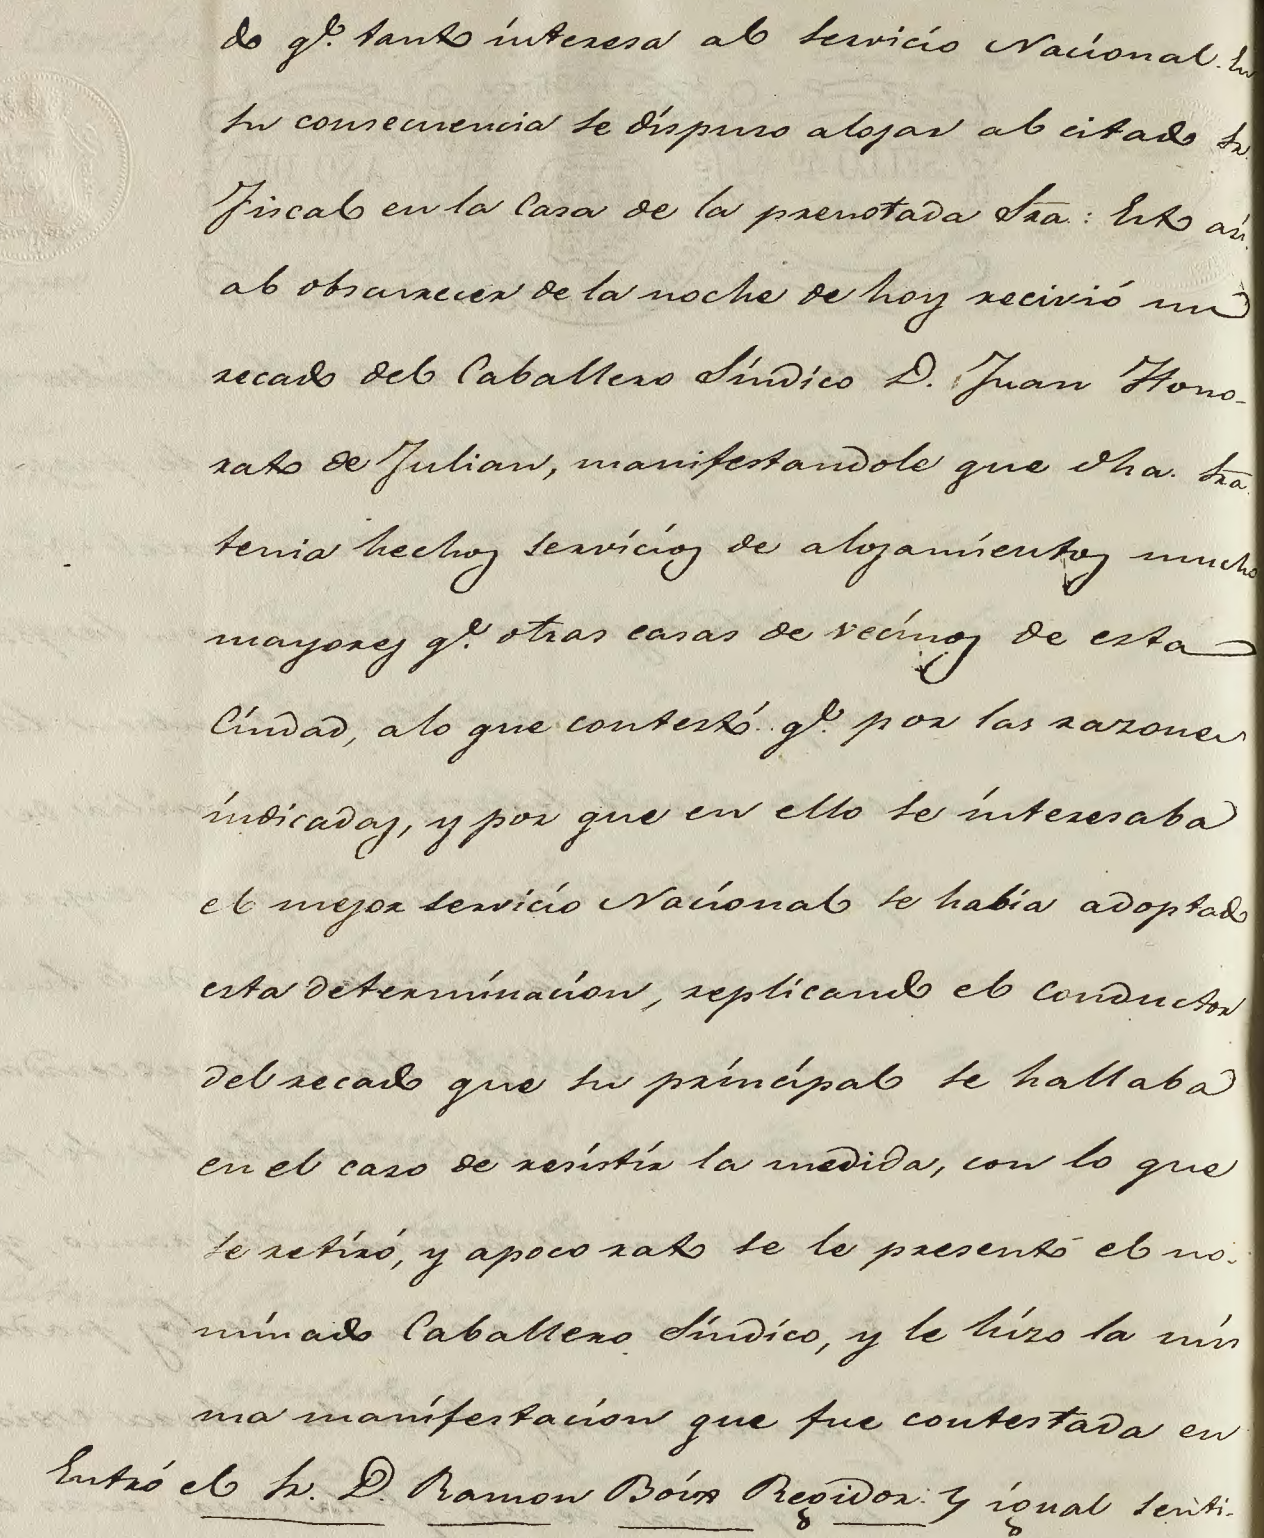 do qᵉ. tanto interesa al servicio Nacional. En
su consecuencia se dispuso alojar al citado Sr.
Fiscal en la Casa de la prenotada Sra.: Esto asi
al obscurecer de la noche de hoy recivió un
recado del Caballero Síndico D. Juan Hono-
rato de Julian, manifestandole que dha. Sra.
tenia hechos servicios de alojamientos mucho
mayores qᵉ. otras casas de vecinos de esta
Ciudad, alo que contestó qᵉ. por las razones
indicadas, y por que en ello se interesaba
el mejor servicio Nacional se habia adoptado
esta determinacion, replicando el conductor
del recado que su principal se hallaba
en el caso de resistir la medida, con lo que
se retiró, y apoco rato se le presentó el no-
minado Caballero Síndico, y le hizo la mis
ma manifestacion que fue contestada en
Entró el Sr. D. Ramon Boix Regidor. y igual senti-